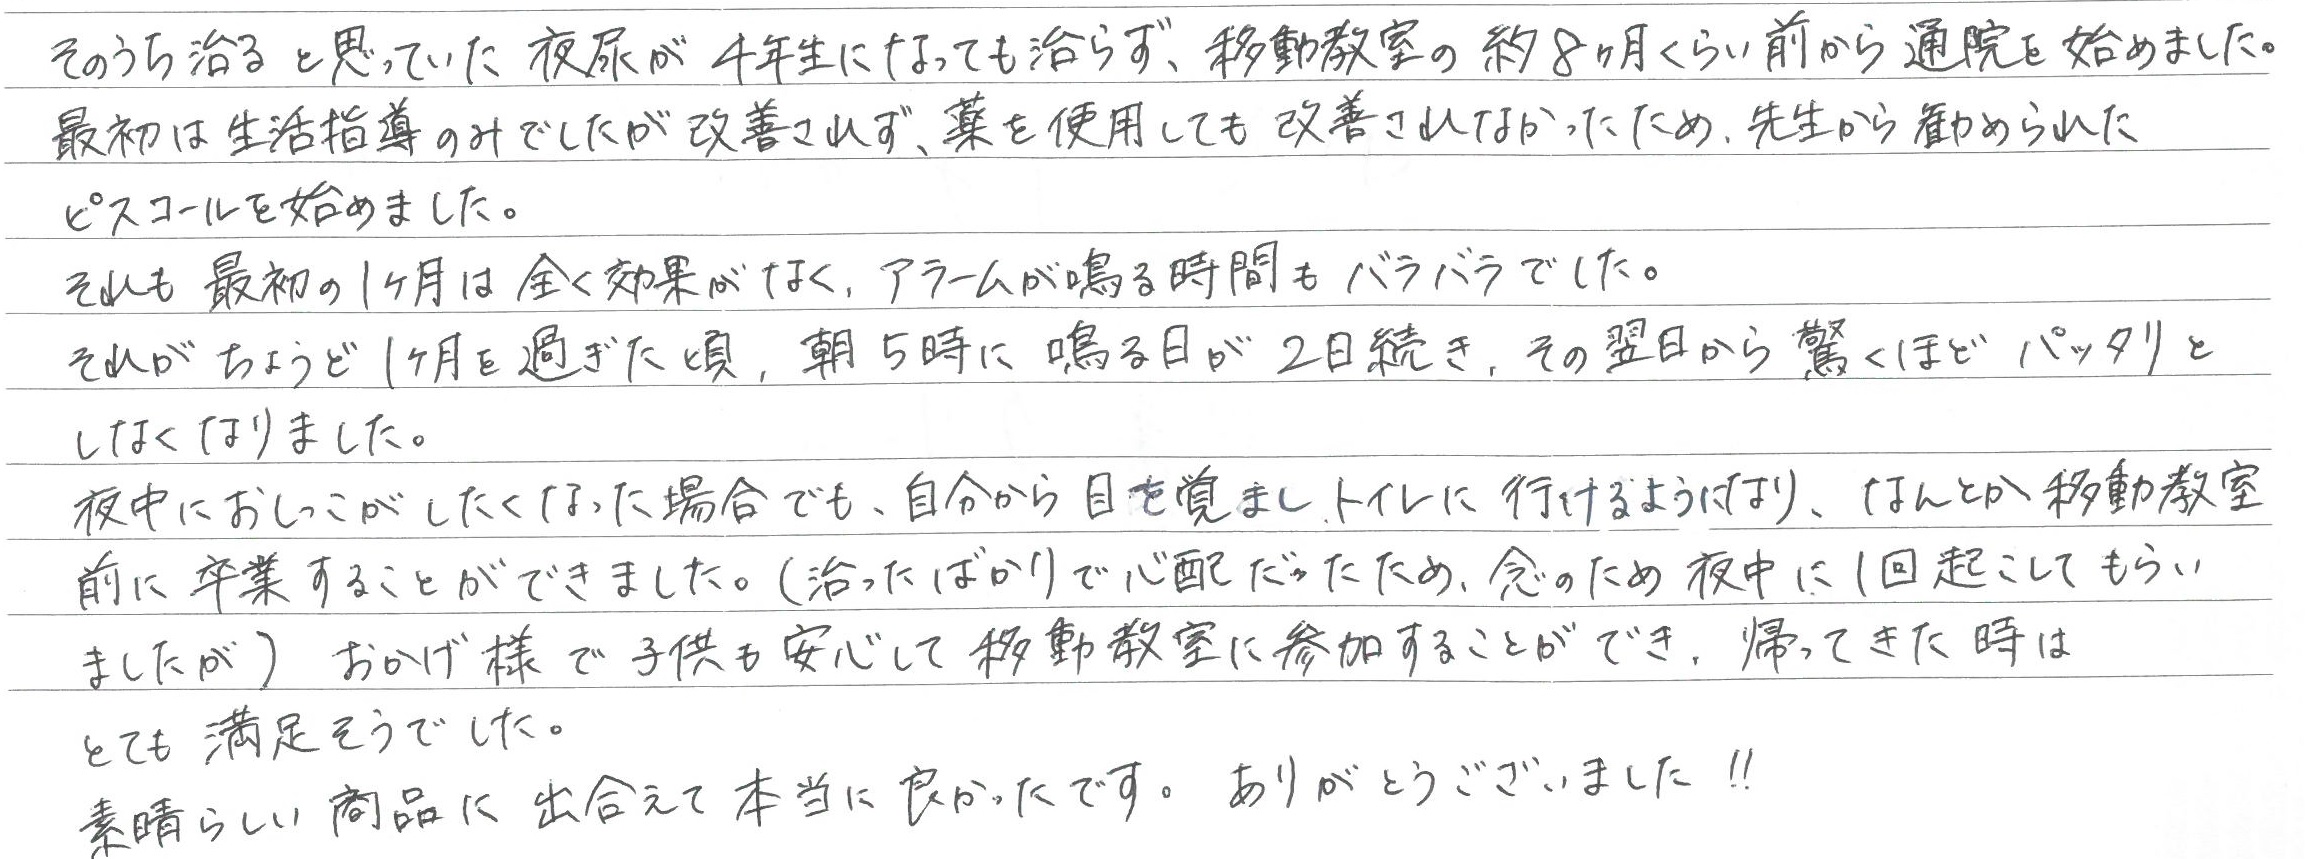 そのうち治ると思っていた夜尿が4年生になっても治らず、移動教室の約8ヶ月くらい前から通院を始めました。
最初は生活指導のみでしたが改善されず、薬を使用しても改善されなかったため、先生から勧められた
ピスコールを始めました。
それも最初の1ヶ月は全く効果がなく、アラームが鳴る時間もバラバラでした。
それがちょうど1ヶ月を過ぎた頃、朝5時に鳴る日が2日続き、その翌日から驚くほどパッタリと
しなくなりました。
夜中におしっこがしたくなった場合でも、自分から目を覚まし、トイレに行けるようになり、なんとか移動教室
前に卒業することができました。(治ったばかりで心配だったため、念のため夜中に1回起こしてもらい
ましたが) おかげ様で子供も安心して移動教室に参加することができ、帰ってきた時は
とても満足そうでした。
素晴らしい商品に出合えて本当に良かったです。ありがとうございました!!